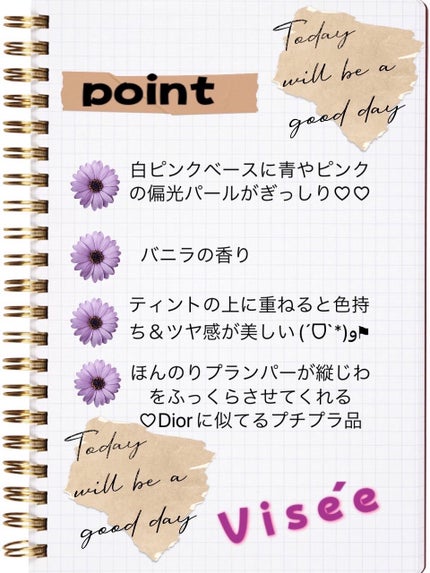 Today
will be a
good day
point
白ピンクベースに青やピンク
の偏光パールがぎっしり♡♡
バニラの香り
ティントの上に重ねると色持
ち＆ツヤ感が美しい(ˊᗜˋ*)و⚑
ほんのりプランパーが縦じわ
をふっくらさせてくれる
♡Diorに似てるプチプラ品
Today
will be a
good day
Visée